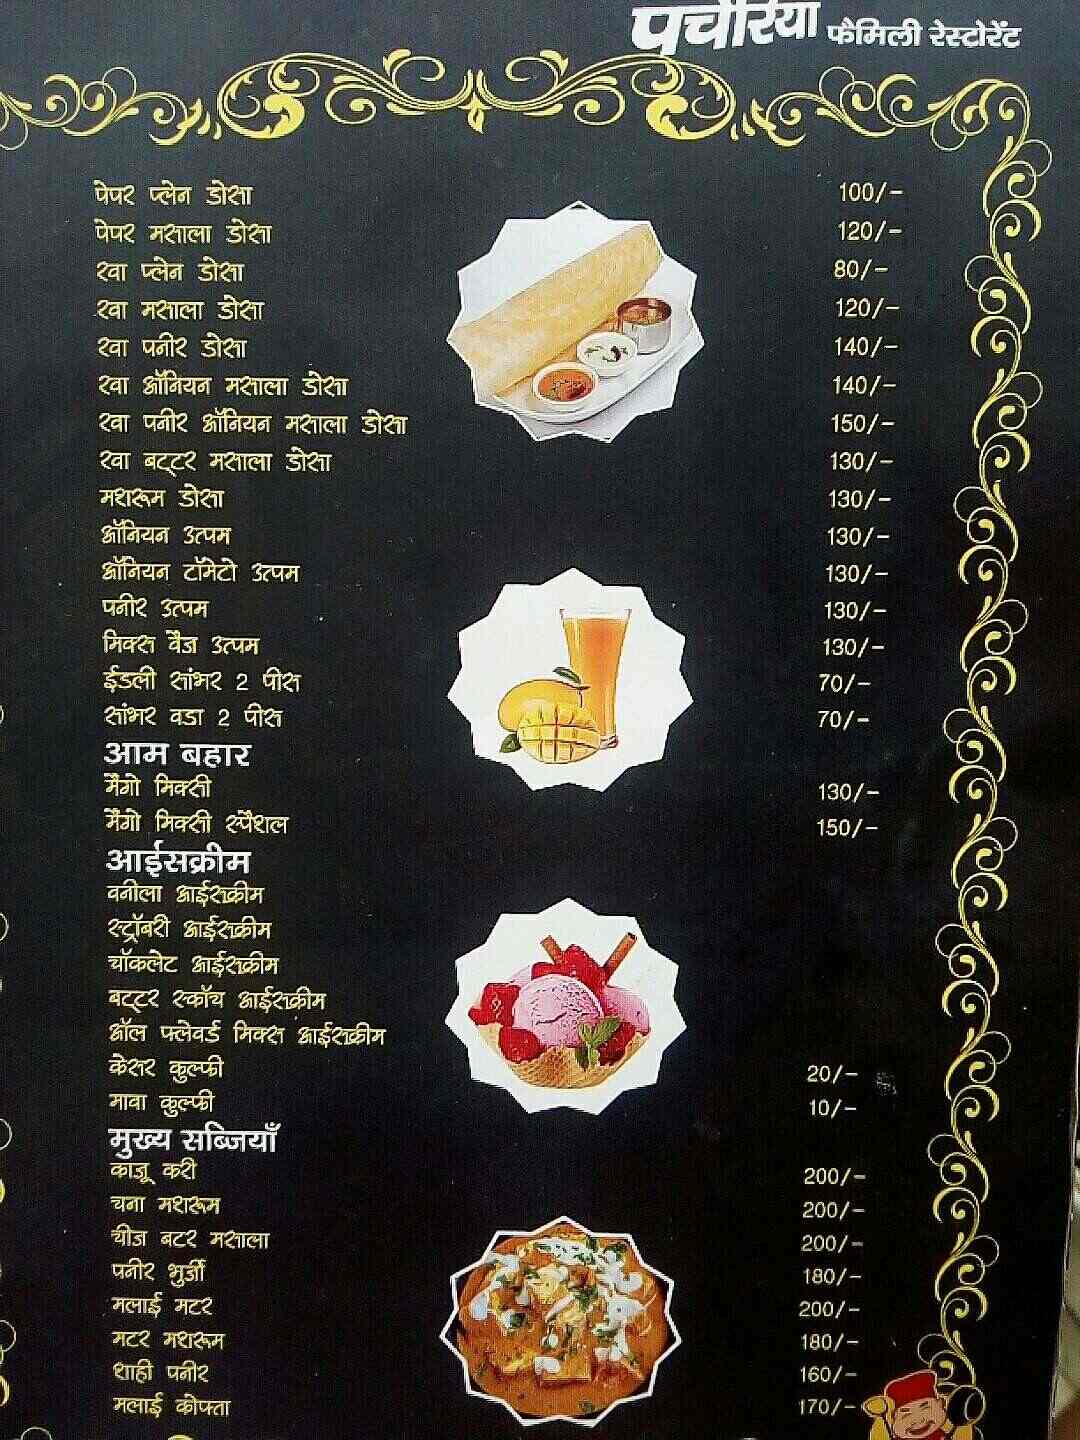 पचेरिया फैमिली रेस्टोरेंट
पेपर प्लेन डोसा 100/-
पेपर मसाला डोसा 120/-
रवा प्लेन डोसा 80/-
रवा मसाला डोसा 120/-
रवा पनीर डोसा 140/-
रवा ऑनियन मसाला डोसा 140/-
रवा पनीर ऑनियन मसाला डोसा 150/-
रवा बट्टर मसाला डोसा 130/-
मशरूम डोसा 130/-
ऑनियन उत्पम 130/-
ऑनियन टॉमेटो उत्पम 130/-
पनीर उत्पम 130/-
मिक्स वैज उत्पम 130/-
ईडली सांभर 2 पीस 70/-
सांभर वडा 2 पीस 70/-
आम बहार
मैंगो मिक्सी 130/-
मैंगो मिक्सी स्पैशल 150/-
आईसक्रीम
वनीला आईसक्रीम
स्ट्रॉबरी आईसक्रीम
चॉकलेट आईसक्रीम
बट्टर स्कॉच आईसक्रीम
ऑल फ्लेवर्ड मिक्स आईसक्रीम
केसर कुल्फी 20/-
मावा कुल्फी 10/-
मुख्य सब्जियाँ
काजू करी 200/-
चना मशरूम 200/-
चीज बटर मसाला 200/-
पनीर भुर्जी 180/-
मलाई मटर 200/-
मटर मशरूम 180/-
शाही पनीर 160/-
मलाई कोफ्ता 170/-